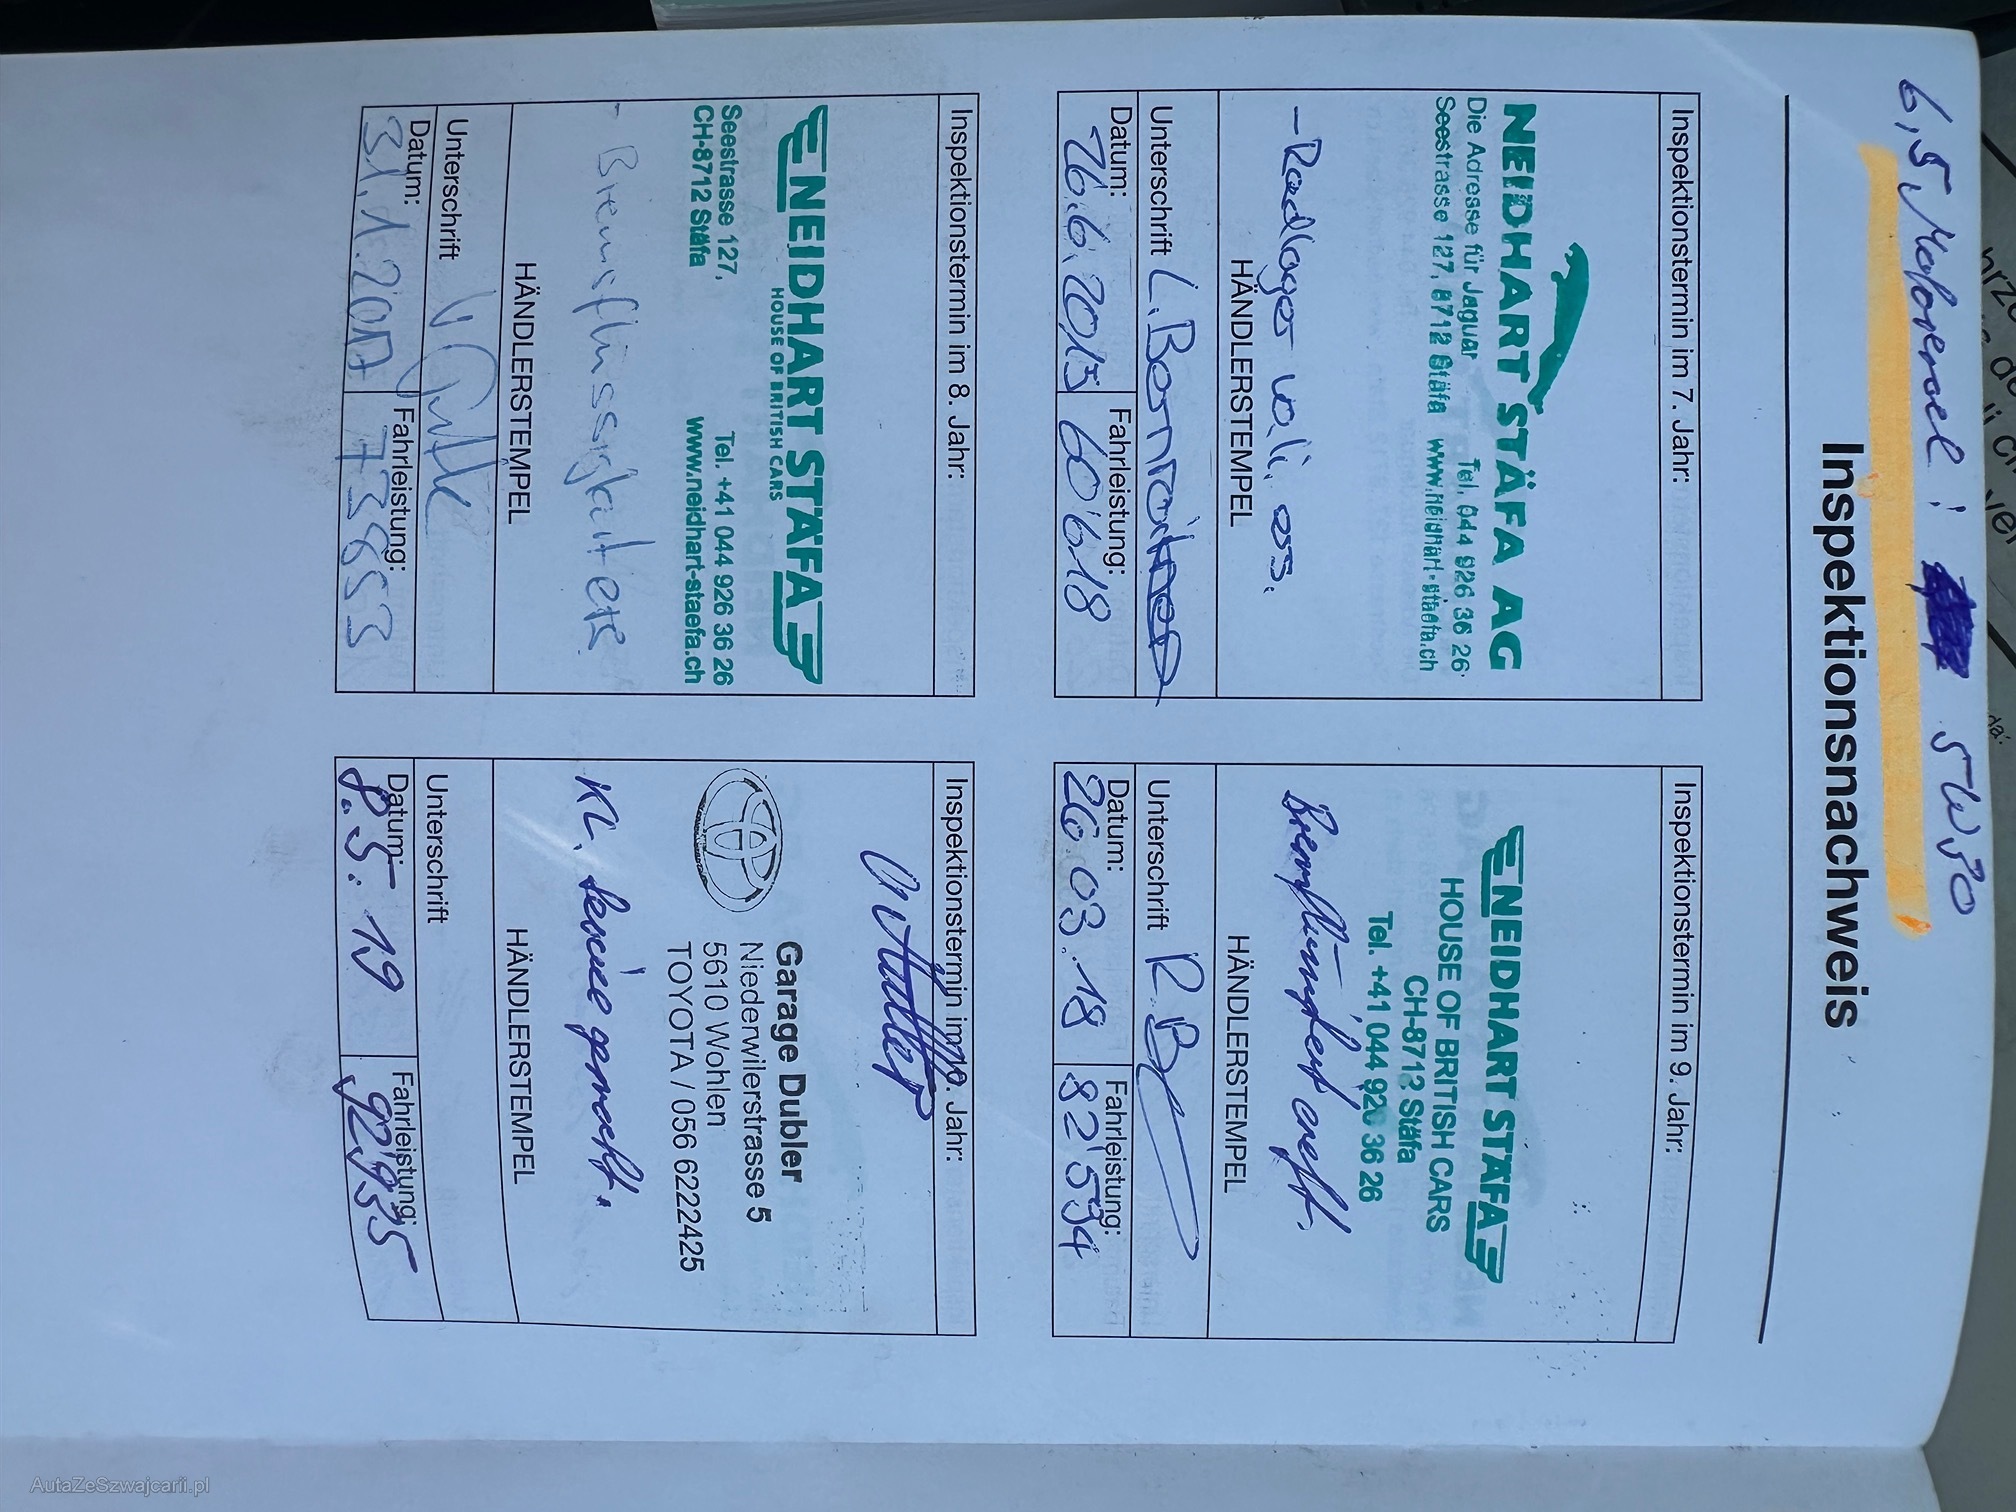 6,5 Motoroel ! 5W30
Inspektionsnachweis
Inspektionstermin im 7. Jahr:
NEIDHART STÄFA AG
Die Adresse für Jaguar Tel. 044 926 36 26
Seestrasse 127, 8712 Stäfa www.neidhart-staefa.ch
- Radlager v. li. ers.
HÄNDLERSTEMPEL
Unterschrift
Datum: 26.6.2015
Fahrleistung: 60'618
Inspektionstermin im 9. Jahr:
NEIDHART STÄFA
HOUSE OF BRITISH CARS
CH-8712 Stäfa
Tel. +41 044 926 36 26
HÄNDLERSTEMPEL
Unterschrift
Datum: 26.03.18
Fahrleistung: 82'534
Inspektionstermin im 8. Jahr:
NEIDHART STÄFA
HOUSE OF BRITISH CARS
Seestrasse 127, Tel. +41 044 926 36 26
CH-8712 Stäfa www.neidhart-staefa.ch
- Bremsflüssigkeit ers.
HÄNDLERSTEMPEL
Unterschrift
Datum: 31.1.2017
Fahrleistung: 73653
Inspektionstermin im 10. Jahr:
Garage Dubler
Niederwilerstrasse 5
5610 Wohlen
TOYOTA / 056 6222425
Kl. Service gemacht.
HÄNDLERSTEMPEL
Unterschrift
Datum: 8.5.19
Fahrleistung: 92'935
AutaZeSzwajcarii.pl